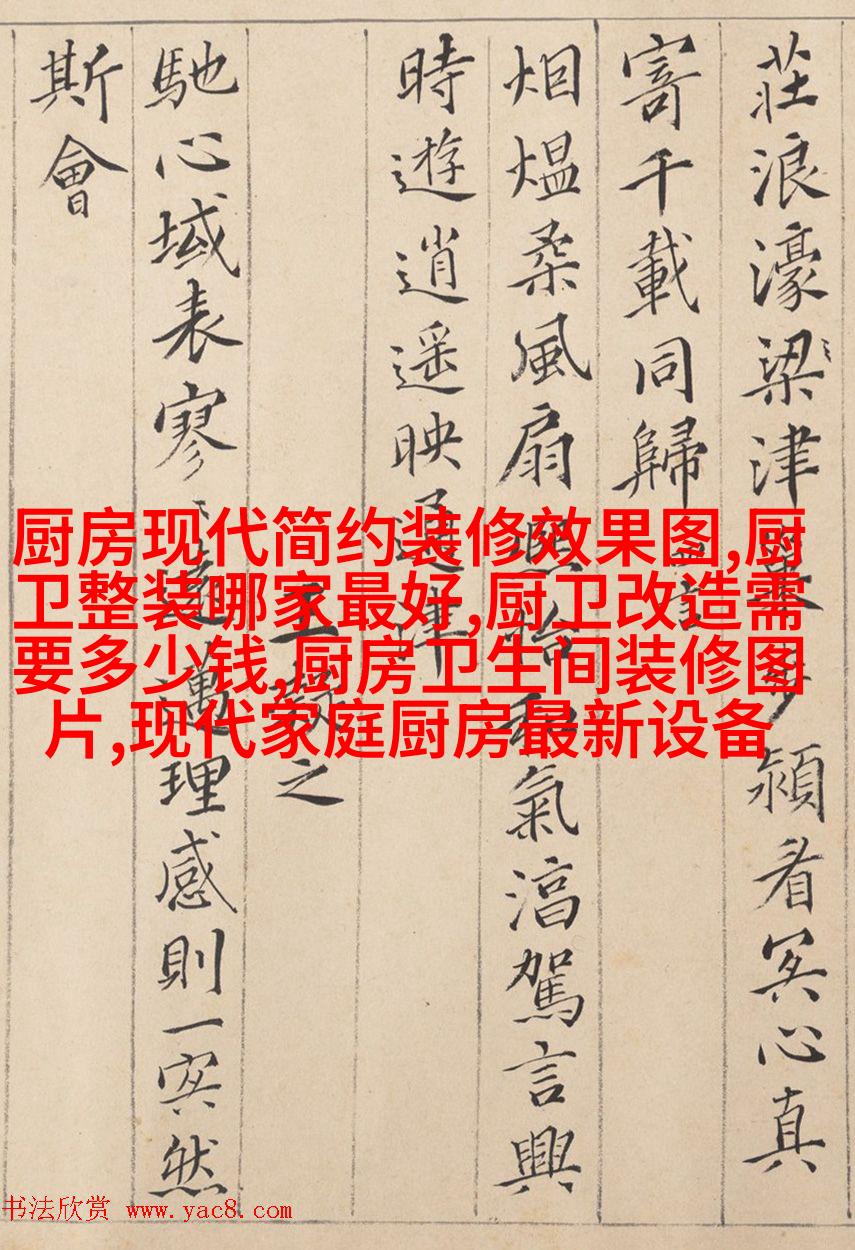 莊浪濠梁津巢步潁眷冥心真
寄千載同歸
烟熅柔風扇熙怡和氣淳駕言興
時遊逍遥映通津
王凝之
馳心域表寥〻遠邁理感則一冥然
斯會
厨房现代简约装修效果图,厨
卫整装哪家最好,厨卫改造需
要多少钱,厨房卫生间装修图
片,现代家庭厨房最新设备
书法欣赏 www.yac8.com